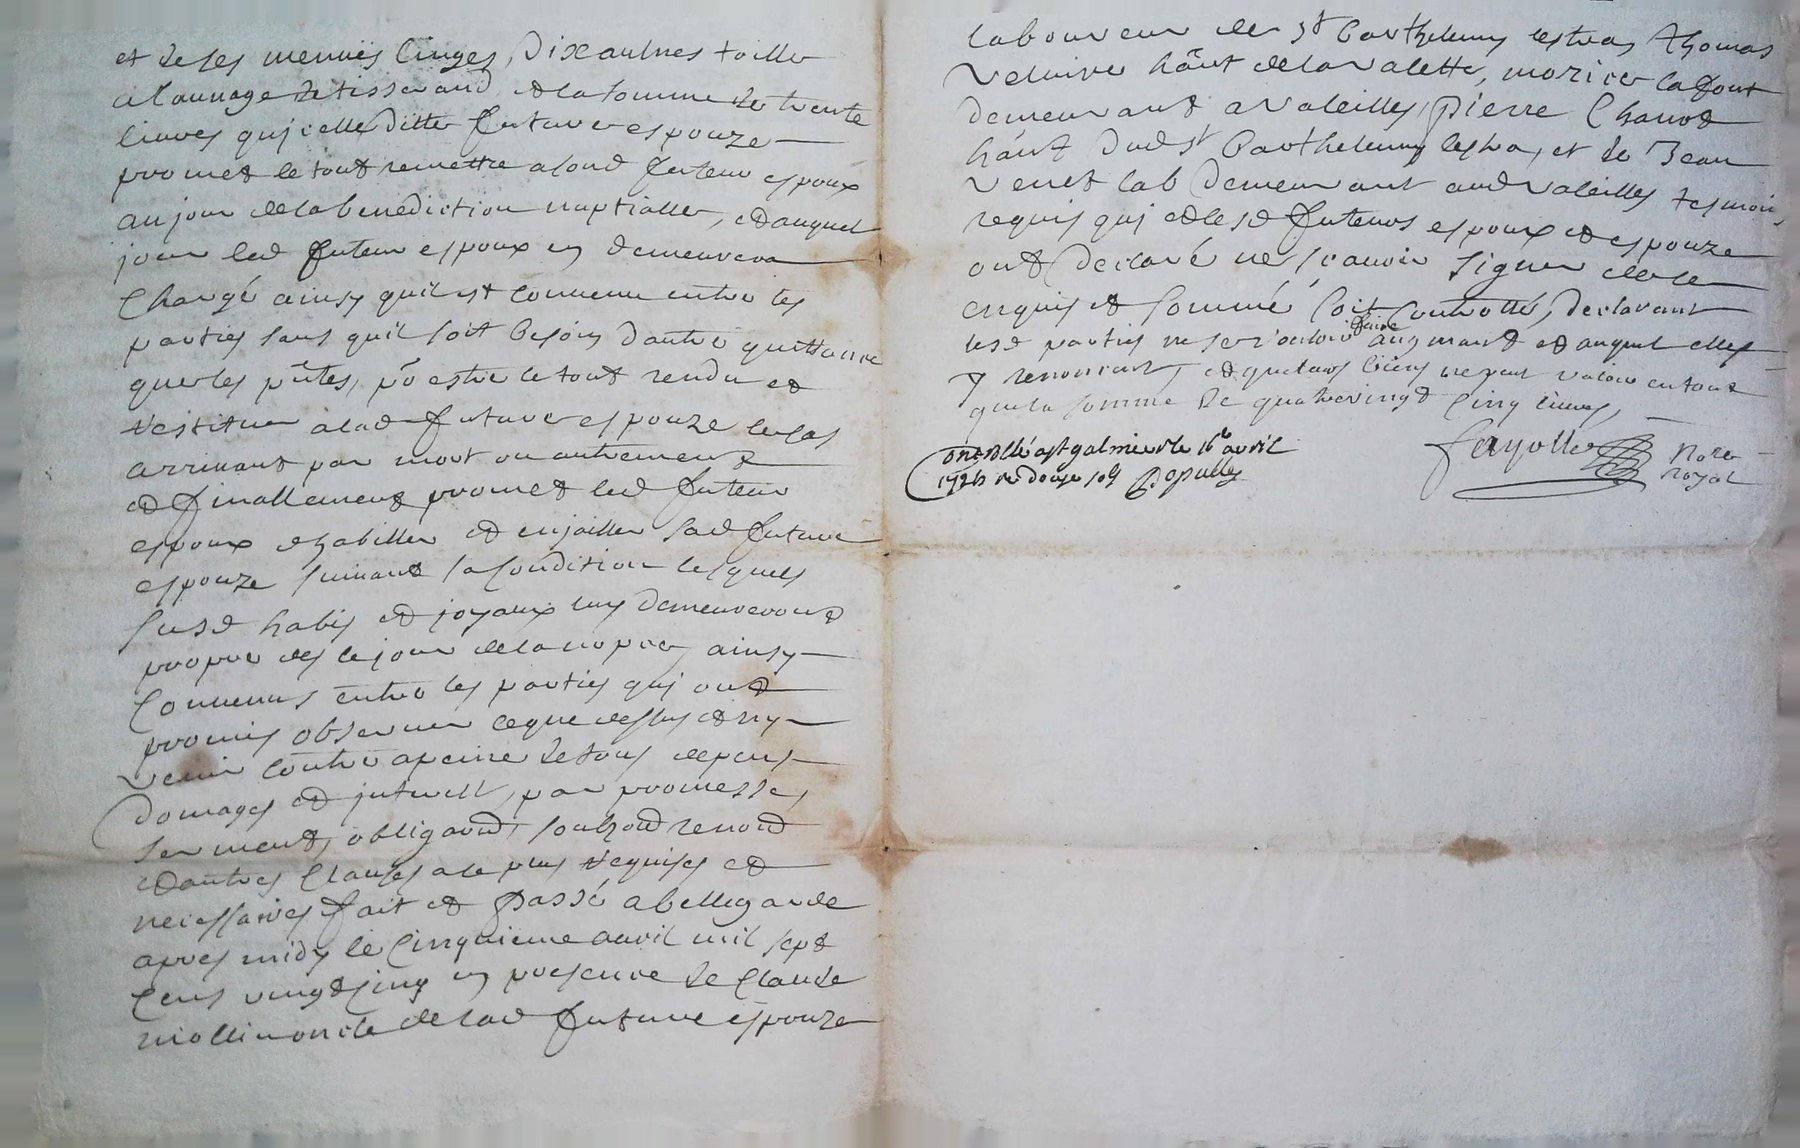 et de ses menues linges, dix aulnes toille
a l'aunage de tisserand et la somme de trente
livres qu'icelle ditte future espouze
promet le tout remettre a sond futeur espoux
au jour de la benediction nuptialle, et auquel
jour led futeur espoux en demeurera
Chargé ainsy quil est convenu entre les
parties sans quil soit besoin d'autre quittance
que les pntes, po estre le tout rendu et
restituer a lad future espouze le cas
arrivant par mort ou autrement
et finallement promet led futeur
espoux d'habiller et enjoiller sad future
espouze suivant sa condition lesquels
susd habis et joyaux luy demeureront
propre des le jour de la nopce, ainsy
Convenus entre les parties qui ont
promis observer ce que dessus et n'y
venir contre a peine de tous depens
domages et interest, par promesse,
serment, obligaond, soubzond renond
et autres Clauses a ce plus requises et
necessaires fait et passé a bellegarde
apres midy le Cinquieme avril mil sept
Cens vingt Cinq en presence de Claude
mollin oncle de lad future espouze
laboureur de st Barthelemy lestra, thomas
hant de la valette, morice lafont
demeurant a valeilles, pierre Chanot
hant dud st Barthelemy lestra, et de Jean
venet lab demeurant aud valeilles tesmoins
requis qui et lesd futeurs espoux et espouze
ont declaré ne scavoir signer de ce
enquis et sommé, soit Controllé, declarant
lesd parties ne se vouloir faire augmant et auquel elles
y renoncent, et que leurs biens ne peut valoir en tout
que la somme de quatrevingt Cinq livres,
Controllé a st galmier le 16e avril
1725 re douze sols Depulley
fayolle Nore
Royal